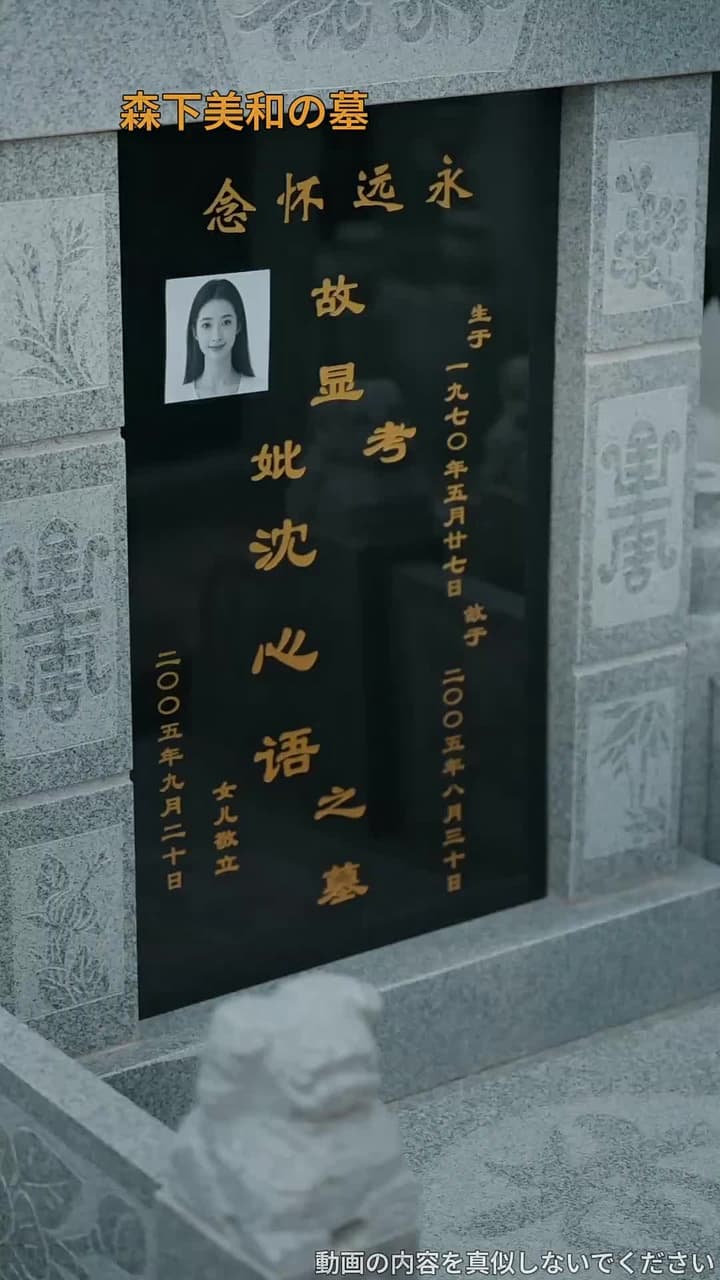 森下美和の墓
永远怀念
生于一九七〇年五月廿七日
故于二〇〇五年八月三十日
故显考妣沈心语之墓
女儿敬立
二〇〇五年九月二十日
動画の内容を真似しないでください